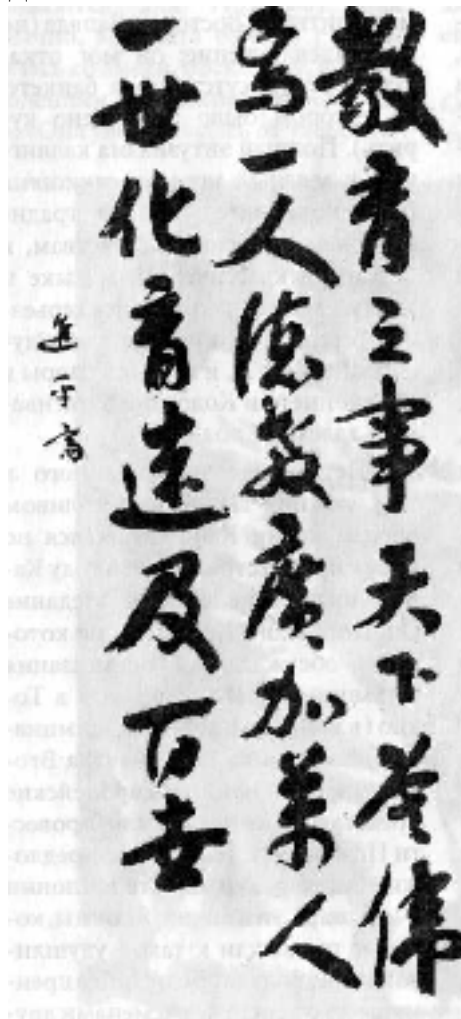 教育之事天下莫偉
焉一人德教廣加萬人
一世化育遠及百世
進乎齋